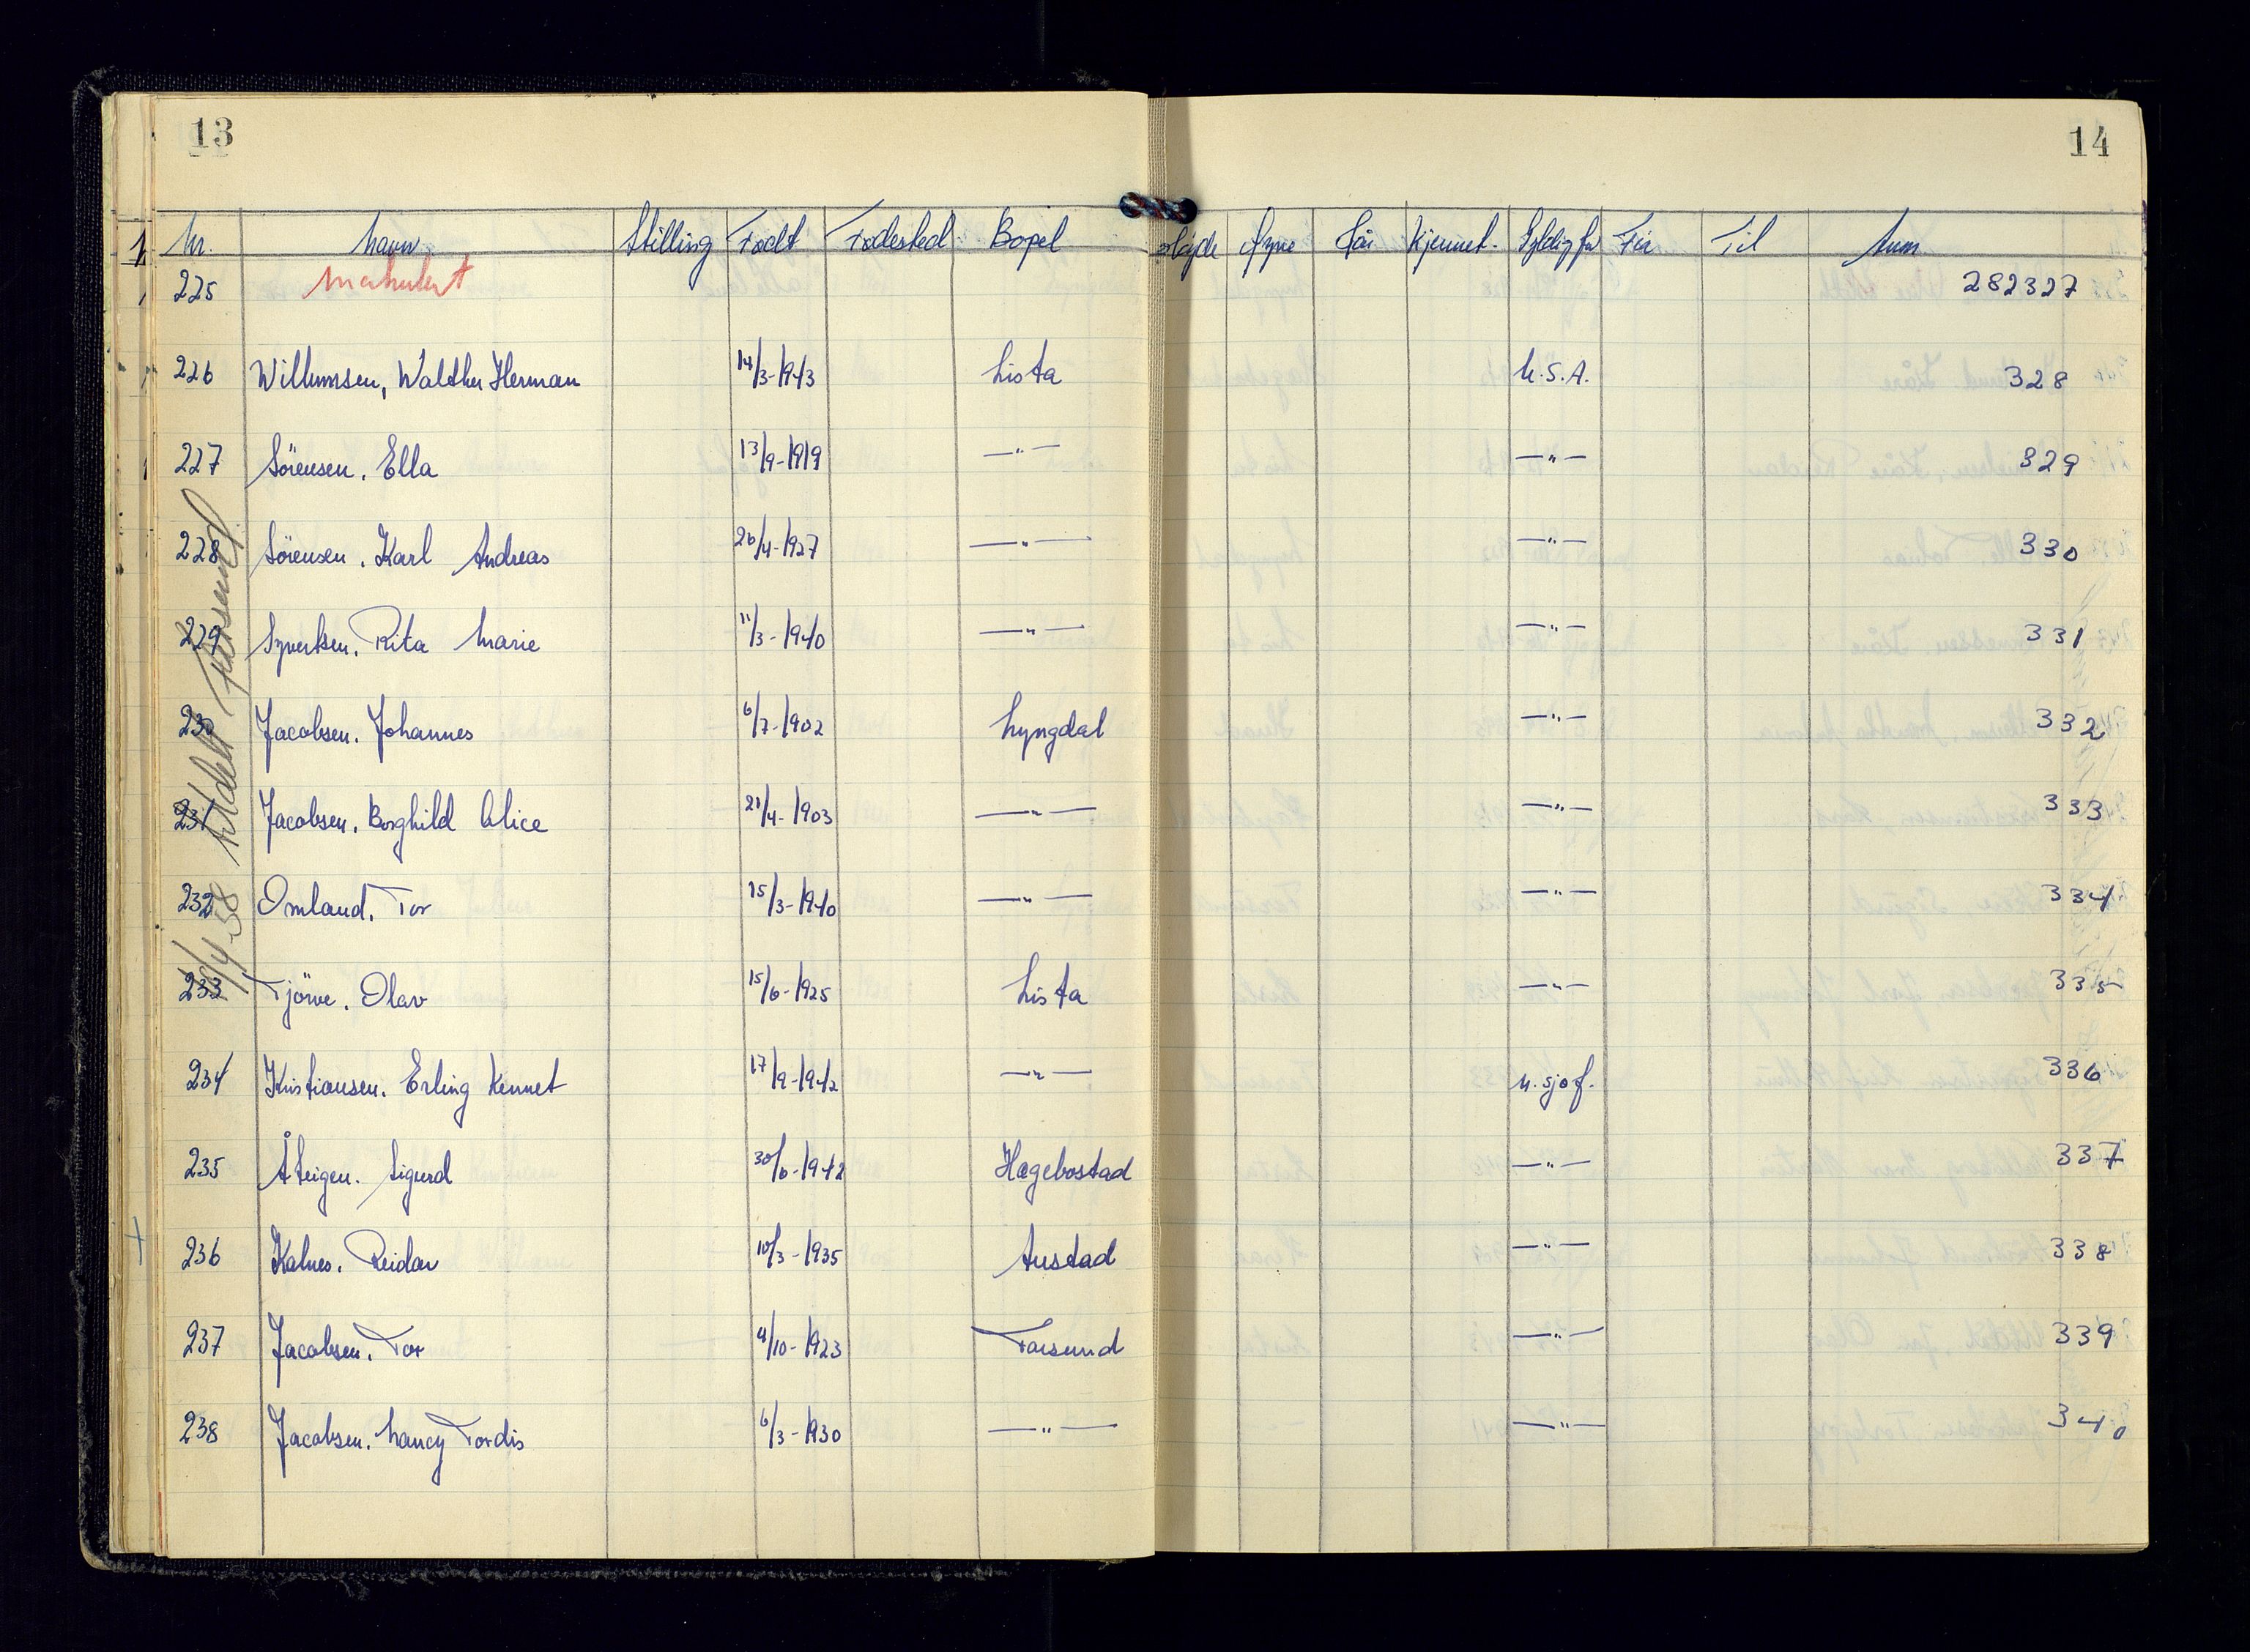 13
14
Nr. Navn Stilling Født Fødested Bopel Høyde Øyne Hår Kjennet. Gyldig for Fra Til Anm
225 Makulert 282327
226 Willumsen, Walther Herman 14/3-1943 Lista U.S.A. 328
227 Sörensen, Ella 13/9-1919 —"— —"— 329
228 Sörensen, Karl Andreas 26/4-1927 —"— —"— 330
229 Syvertsen, Rita Marie 11/3-1940 —"— —"— 331
230 Jacobsen, Johannes 6/7-1902 Lyngdal —"— 332
231 Jacobsen, Borghild Alice 21/4-1903 —"— —"— 333
232 Omland, Tor 15/3-1940 —"— —"— 334
233 Tjörve, Olav 15/6-1925 Lista —"— 335
234 Kristiansen, Erling Kennet 17/9-1942 —"— u.sjof. 336
235 Åteigen, Sigurd 30/6-1942 Hægebostad —"— 337
236 Kalnes, Reidar 10/3-1935 Austad —"— 338
237 Jacobsen, Tor 9/10-1923 Farsund —"— 339
238 Jacobsen, Nancy Tordis 6/3-1930 —"— —"— 340
/4-58 Utdelt Farsund